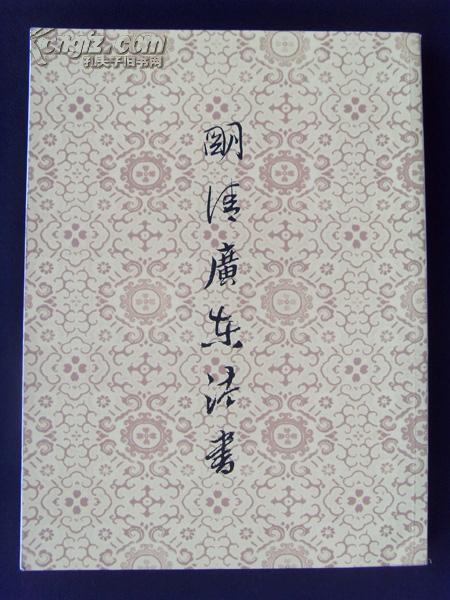 kongfz.com
孔夫子旧书网
明清廣东法書